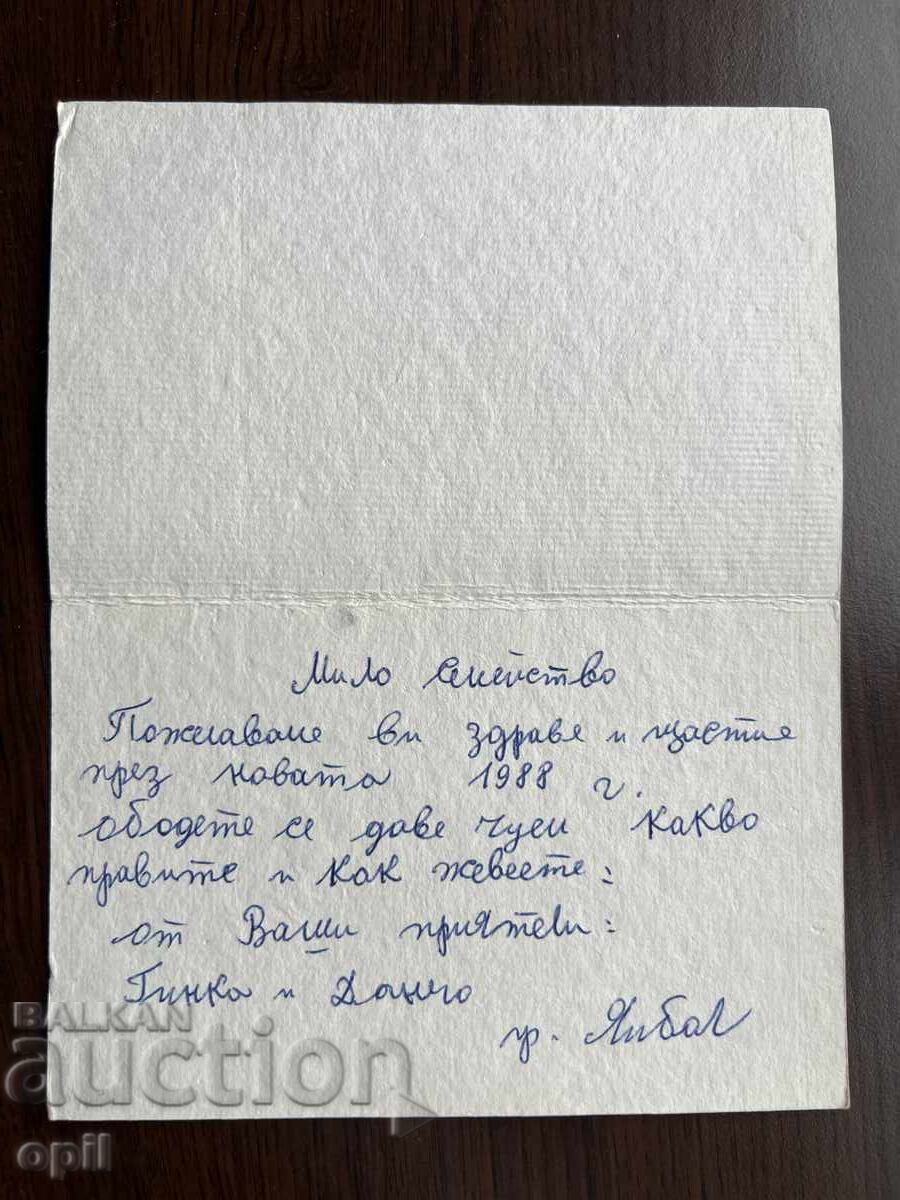 Мило семейство
Пожелаваме ви здраве и щастие
през новата 1988 г.
ободете се даве чуеи какво
правите и как жевеете:
от Ваши приятели:
Гинка и Данчо
гр. Ямбол
BALKAN
auction
opil